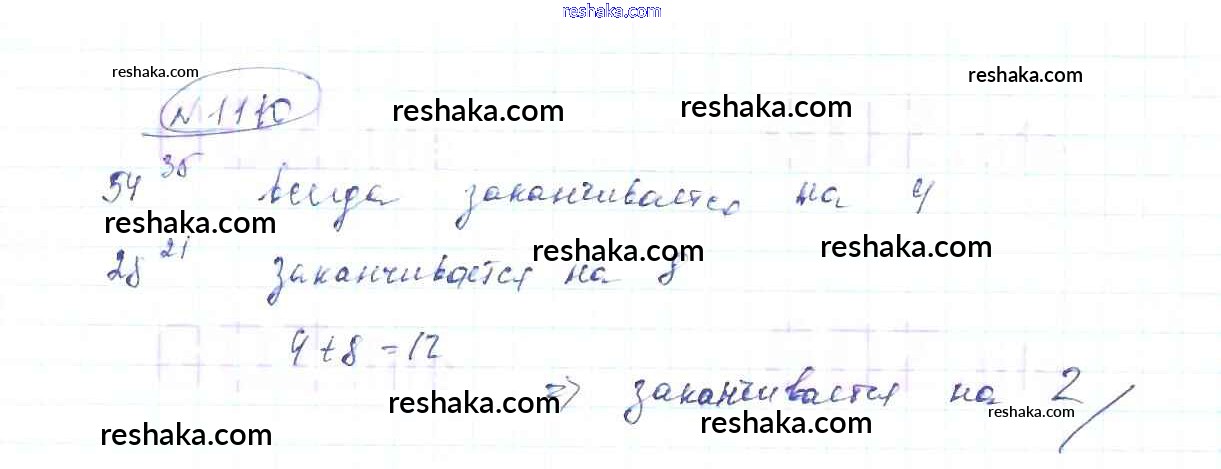 reshaka.com
reshaka.com reshaka.com
№ 1110
reshaka.com reshaka.com
54³⁵ всегда заканчивается на 4
reshaka.com
28²¹ заканчивается на 8
reshaka.com reshaka.com
4+8=12
=> заканчивается на 2
reshaka.com reshaka.com
reshaka.com reshaka.com